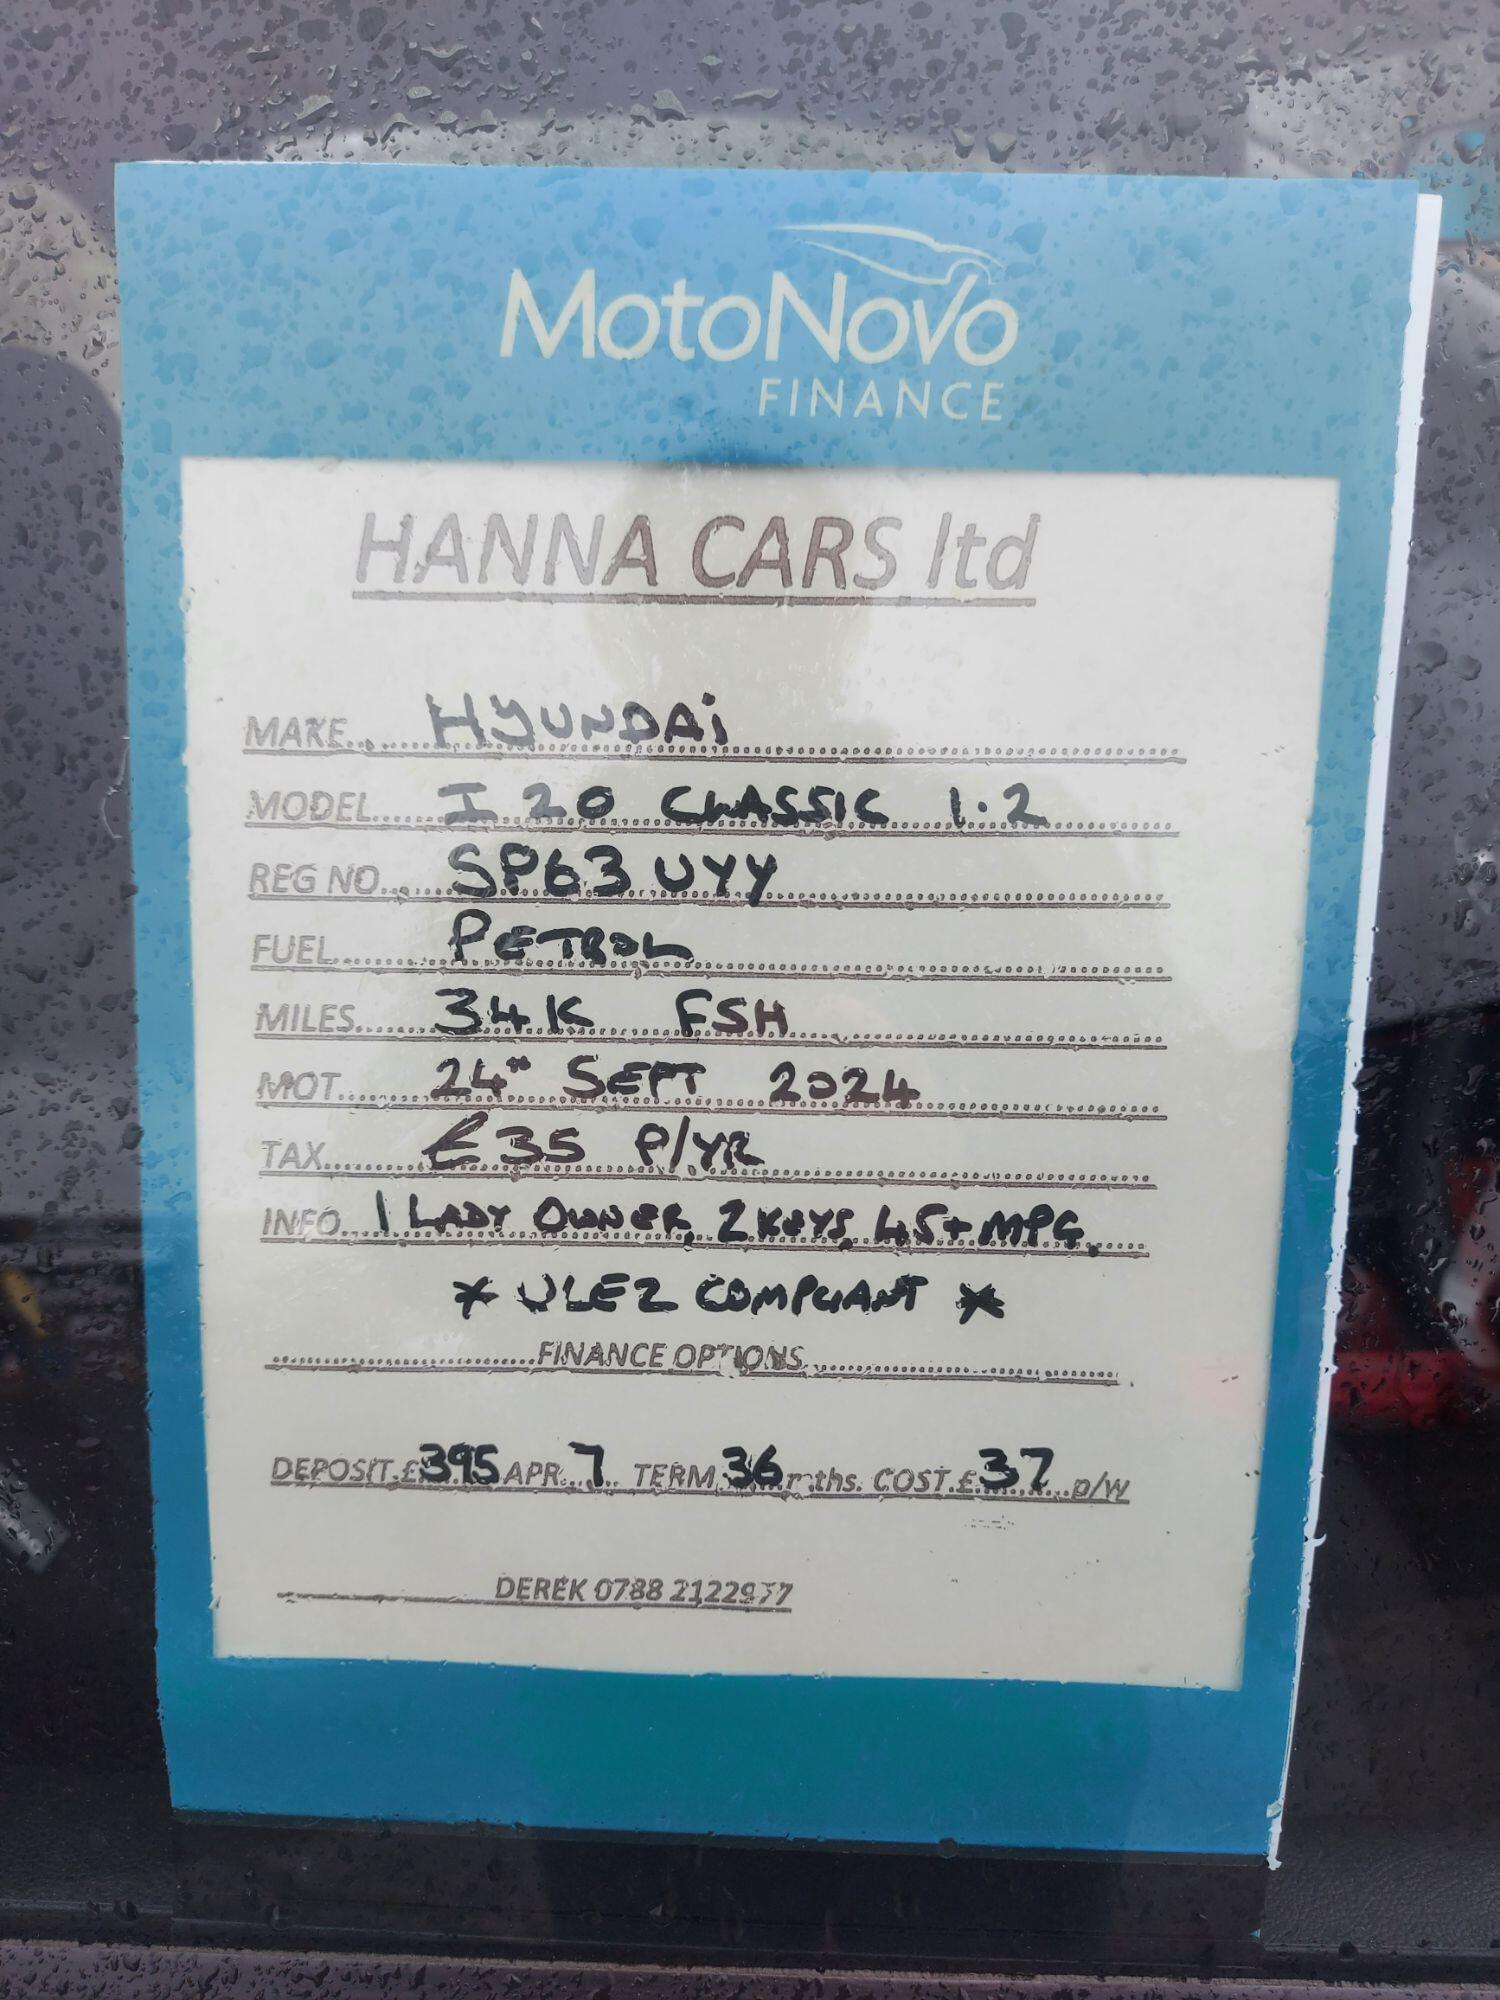 MotoNovo
FINANCE
HANNA CARS ltd
MAKE....HYUNDAi
MODEL....I 20 CLASSIC 1.2
REG NO....SP63 UYY
FUEL....PETROL
MILES....34K FSH
MOT....24th SEPT 2024
TAX....£35 P/YR
INFO...1 LADY OWNER, 2 KEYS, 45+ MPG.
* ULEZ COMPLIANT *
FINANCE OPTIONS
DEPOSIT.£395 APR..7.. TERM.36mths. COST.£37...p/w
DEREK 0788 2122977